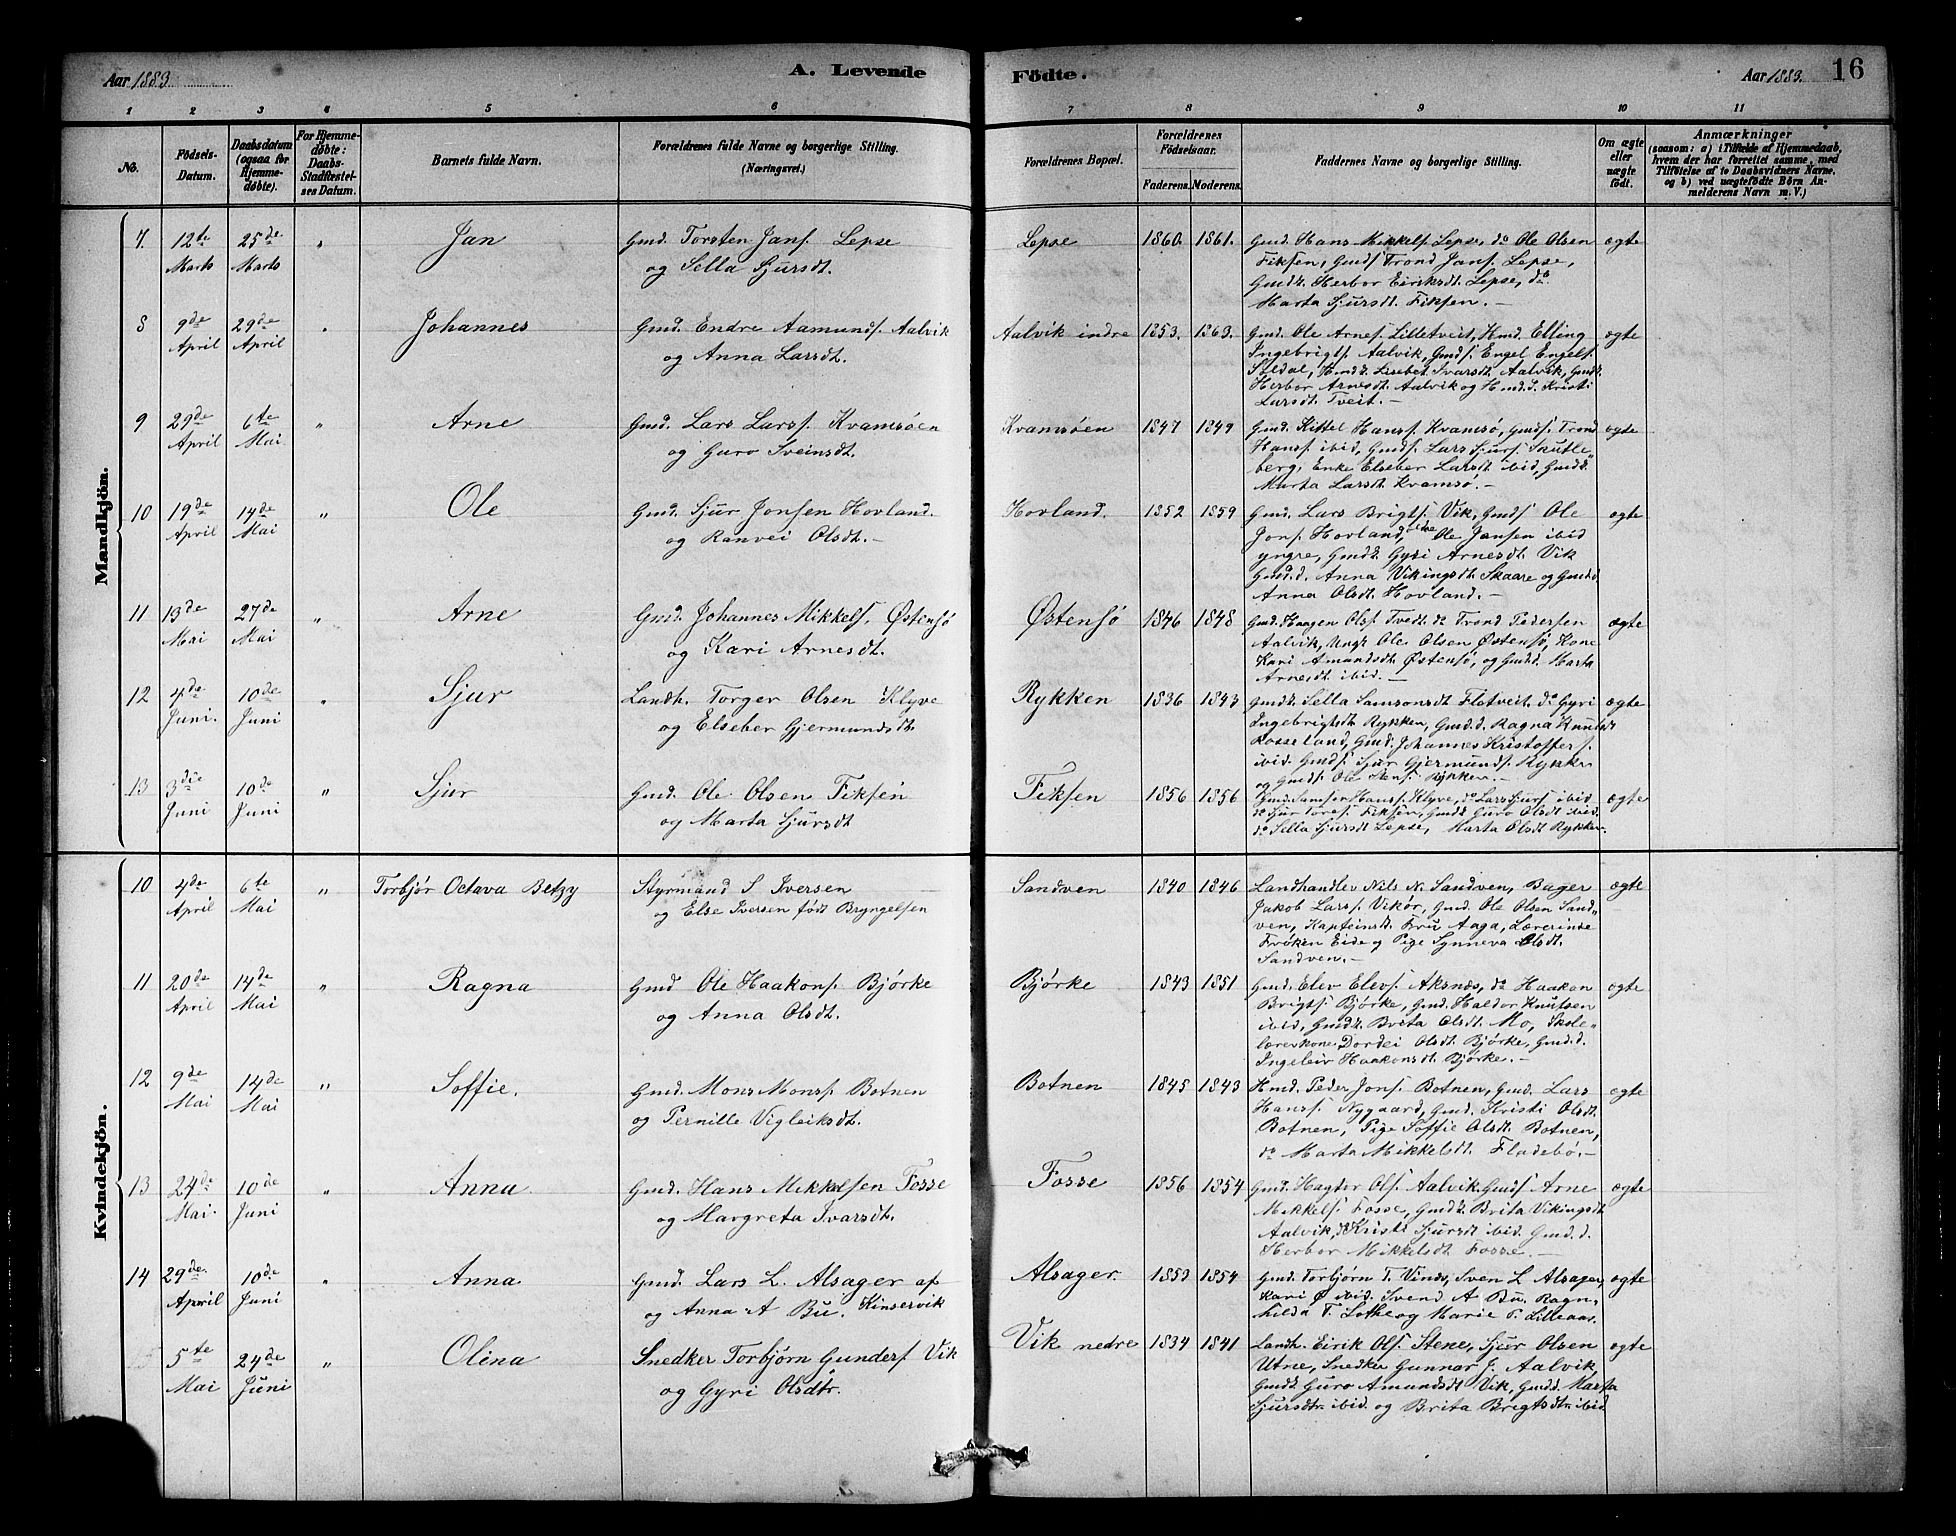 Aar 1883
A. Levende
Födte.
Aar 1883. 16
1 2 3 4 5 6 7 8 9 10 11
No.
Födsels-Datum.
Daabsdatum (ogsaa for Hjemme-döbte).
For Hjemme-döbte: Daabs-Stadfæstel-ses Datum.
Barnets fulde Navn.
Forældrenes fulde Navne og borgerlige Stilling.
(Næringsvei.)
Forældrenes Bopæl.
Forældrenes Födselsaar.
Faderens. Moderens.
Faddernes Navne og borgerlige Stilling.
Om ægte eller uægte födt.
Anmærkninger
(saasom: a) i Tilfælde af Hjemmedaab,
hvem der har forrettet samme, med
Tilföielse af to Daabsvidners Navne.
og b) ved uægtefödte Börn An-
melderens Navn m. V.)
Mandkjön.
7. 12te Marts 25de Marts " Jan
Gmd. Torsten Jansf. Lepse
og Sella Sjursdt.
Lepse 1860. 1861.
Gmd. Hans Mikkelsf. Lepse, do Ole Olsen
Fiksen, Gmdsf. Trond Jansf. Lepse,
Gmdk. Herbor Eiriksdt. Lepse, do
Marta Sjursdt. Fiksen. -
ægte
8 9de April 29de April " Johannes
Gmd. Endre Aamundsf. Aalvik
og Anna Larsdt.
Aalvik indre 1853. 1863.
Gmd. Ole Arnesf. Lilletveit, Hmd. Elling
Ingebrigtsf. Aalvik, Gmdsf. Engel Engelsf.
Soldal, Hmdk. Lisebet Ivarsdt. Aalvik, Gmdk.
Herbor Arnesdt. Aalvik og Hmd.d. Kristi
Larsdt. Tveit. -
ægte
9 29de April 6te Mai " Arne
Gmd. Lars Larsf. Kvamsøen
og Guro Sveinsdt.
Kvamsøen 1847 1849
Gmd. Kittel Hansf. Kvamsø, Gmdsf. Trond
Hansf. ibid, Gmdsf. Lars Sjursf. Skutle-
berg, Enke Elseber Larsdt. ibid, Gmdd.
Marta Larsdt. Kvamsø. -
ægte
10 19de April 14de Mai " Ole
Gmd. Sjur Jonsen Hovland.
og Ranvei Olsdt. -
Hovland. 1852 1859
Gmd. Lars Brigtsf. Vik, Gmdsf. Ole
Jonsf. Hovland, Ole Jansen ibid
yngre, Gmdk. Gyri Arnesdt. Vik
Gmd.d. Anna Vikingsdt. Skaare og Gmd.d
Anna Olsdt. Hovland. -
ægte
11 13de Mai 27de Mai " Arne
Gmd. Johannes Mikkelsf. Østensø
og Kari Arnesdt.
Østensø 1846 1848
Gmd. Haagen Olsf. Tvedt. do Trond Pedersen
Aalvik, Ungk. Ole Olsen Østensø, Kone
Kari Amundsdt. Østensø, og Gmd.d. Marta
Arnesdt. ibid. -
ægte
12 4de Juni. 10de Juni " Sjur
Landh. Torger Olsen Klyve
og Elseber Gjermundsdt.
Rykken 1836 1843
Gmdk. Sella Samsonsdt. Flotveit, do Gyri
Ingebrigtsdt. Rykken, Gmd.d. Ragna Knutsdt
Rosseland, Gmd. Johannes Kristoffersf.
ibid. Gmdsf. Sjur Gjermundsf. Rykken
og Gmdsf. Ole Stensf. Rykken. -
ægte
13 3die Juni 10de Juni " Sjur
Gmd. Ole Olsen Fiksen
og Marta Sjursdt
Fiksen 1856 1856
Gmd. Samson Hansf. Klyve, do Lars Sjursf. ibid
do Sjur Toresf. Fiksen, Gmdk. Guro Olsdt. ibid.
do Sella Sjursdt. Lepse, Marta Olsdt. Rykken.
ægte
Kvindekjön.
10 4de April 6te Mai " Torbjør Octava Betzy
Styrmand S Iversen
og Else Iversen født Bryngelsen
Sandven 1840 1846
Landhandler Nils N. Sandven, Bager
Jakob Larsf. Vikør, Gmd. Ole Olsen Sand-
ven, Kapteinsdt. Fru Aaga, Lærerinde
Frøken Eide og Pige Synneva Olsdt.
Sandven. -
ægte
11 20de April 14de Mai " Ragna
Gmd Ole Haakonsf. Bjørke
og Anna Olsdt.
Bjørke 1843 1851
Gmd. Elev Elevsf. Aksnæs, do Haakon
Brigtsf. Bjørke, Gmd. Haldor Knutsen
ibid, Gmdk. Brita Olsdt. Mo, Skole-
lærerkone Dordei Olsdt. Bjørke, Gmd.d.
Ingeleiv Haakonsdt. Bjørke. -
ægte
12 9de Mai 14de Mai " Soffie.
Gmd. Mons Monsf. Botnen
og Pernille Vigleiksdt.
Botnen 1845 1843
Hmd. Peder Jonsf. Botnen, Gmd. Lars
Hansf. Nygaard, Gmd. Kristi Olsdt.
Botnen, Pige Soffie Olsdt. Botnen,
do Marta Mikkelsdt. Fladebø. -
ægte
13 24de Mai. 10de Juni " Anna
Gmd. Hans Mikkelsen Fosse
og Margreta Ivarsdt.
Fosse 1856 1854
Gmd. Hagtor Olsf. Aalvik. Gmdsf. Arne
Mikkelsf. Fosse, Gmdk. Brita Vikingsdt
Aalvik, do Kristi Sjursdt ibid. Gmd.d.
Herbor Mikkelsdt. Fosse. -
ægte
14 29de April 10de Juni " Anna
Gmd. Lars L. Alsager af
og Anna A Bu. Kinservik
Alsager. 1853 1854
Gmd. Torbjørn T. Vines, Sven L Alsager,
Kari Ø ibid. Svend A Bu. Ragn-
hilda T. Lothe og Marie P. Lilleaas.
ægte
15 5te Mai 24de Juni " Olina
Snedker Torbjørn Gundersf Vik
og Gyri Olsdtr.
Vik nedre 1834 1841
Landh. Eirik Olsf. Stene, Sjur Olsen
Utne, Snedker Gunnar J. Aalvik,
Gmdk. Guro Amundsdt Vik, Gmdd. Marta
Sjursdtr. ibid. og Brita Brigtsdtr. ibid.
ægte